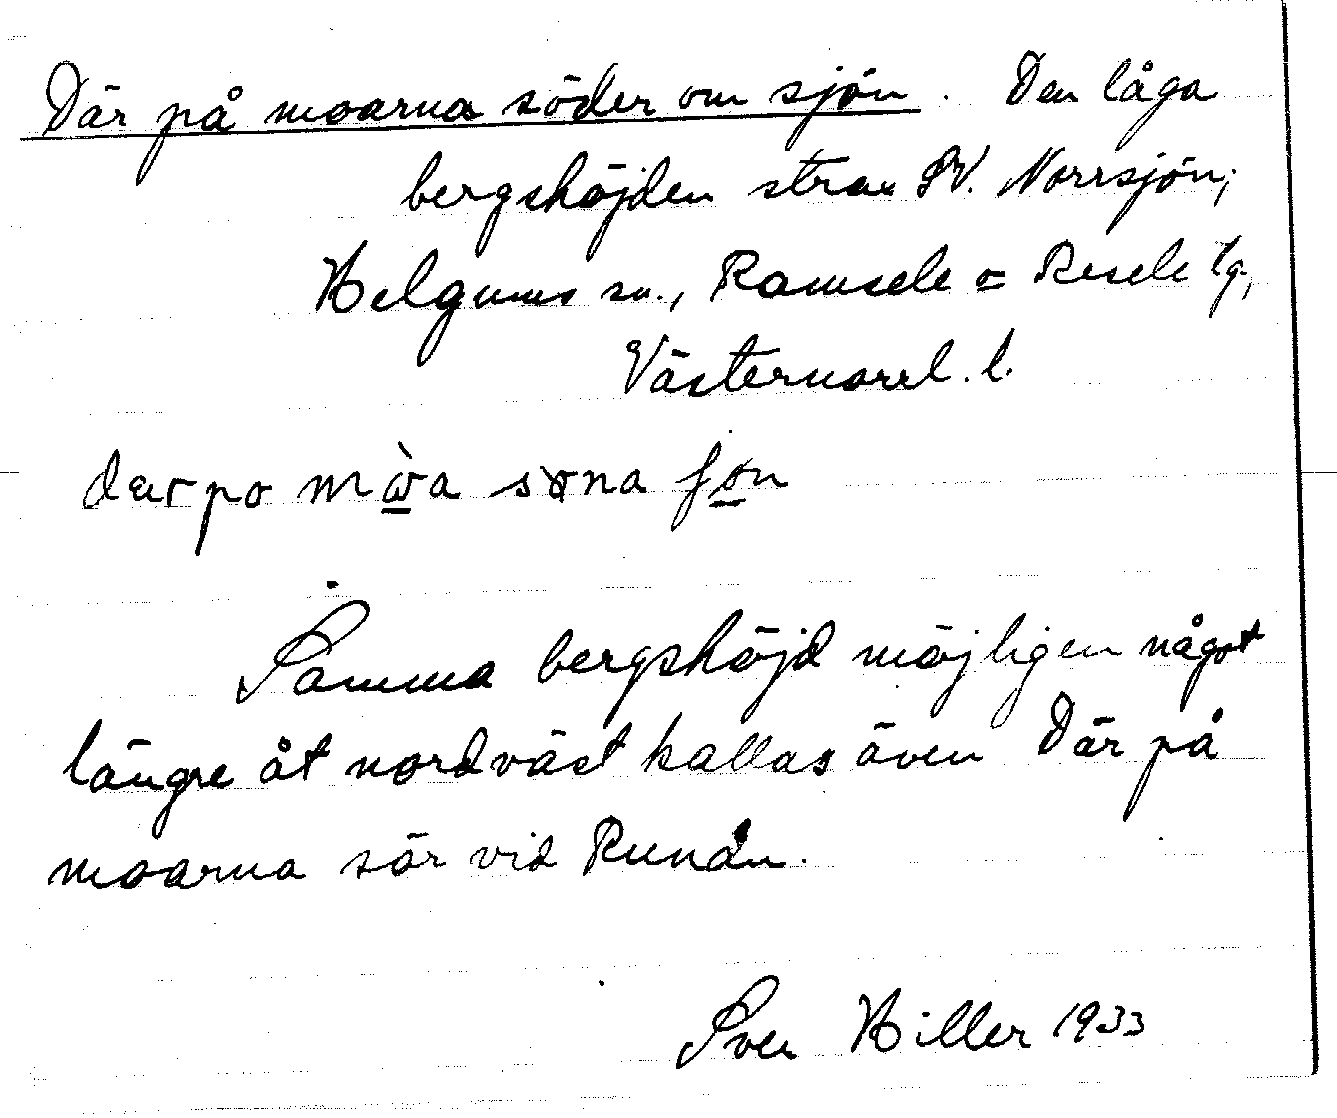 Där på moarna söder om sjön. Den låga
bergshöjden strax SV. Norrsjön,
Helgums sn., Ramsele o Resele tg,
Västernorrl. l.
där po mòra søna ʃøn
Samma bergshöjd möjligen något
längre åt nordväst kallas även Där på
moarna sör vid Rundn.
Sven Hiller 1933